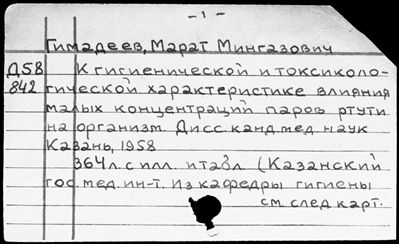 - 1 -
Гимадеев, Марат Мингазович
Д58 К гигиенической и токсиколо-
842 гической характеристике влияния
малых концентраций паров ртути
на организм. Дисс. канд. мед. наук
Казань, 1958
364 л. с илл. и табл. (Казанский
гос. мед. ин-т. Из кафедры гигиены
см. след. карт.